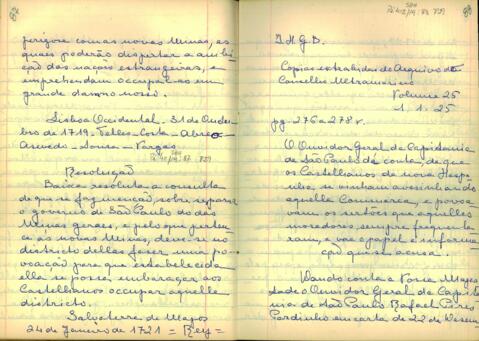 perigose com as novas Minas, as
quaes poderão dispertar a ambi
ção das nações estrangeiras, e
emprehendam occupal-as em
grande damno nosso.
Lisboa Occidental. 31 de Outu
bro de 1719 - Telles - Costa - Abreo
Azevedo - Souza - Vargas
Resolução
Baixa resoluta a consulta
de que se faz menção, sobre separar
o governo de São Paulo do das
Minas geraes, e pelo que perten
ce as novas Minas, deve-se no
districto dellas fazer uma po
voação para que estabelecida
ella se possa embaraçar aos
Castelhanos occupar aquelle
districto.
Salvaterra de Magos
24 de Janeiro de 1721 = Rey =
I.H.G.B.
Copias extrahidas do Arquivo do
Conselho Ultramarino
Volume 25
1. 1. 25
pg. 276 a 278 v.
O Ouvidor Geral da Capitania
de São Paulo dá conta de que
os Castelhanos de nova Hesp
se vinham avesinhando
aquella Commarca, e povoa
vam os sertões que aquelles
moradores, sempre frequenta
ram, e vae o papel e informa
ção que se acusa.
Dando conta a Vossa Mages
tade o Ouvidor Geral da Capita
nia de São Paulo Rafael Pires
Pardinho em carta de 22 de Dezem